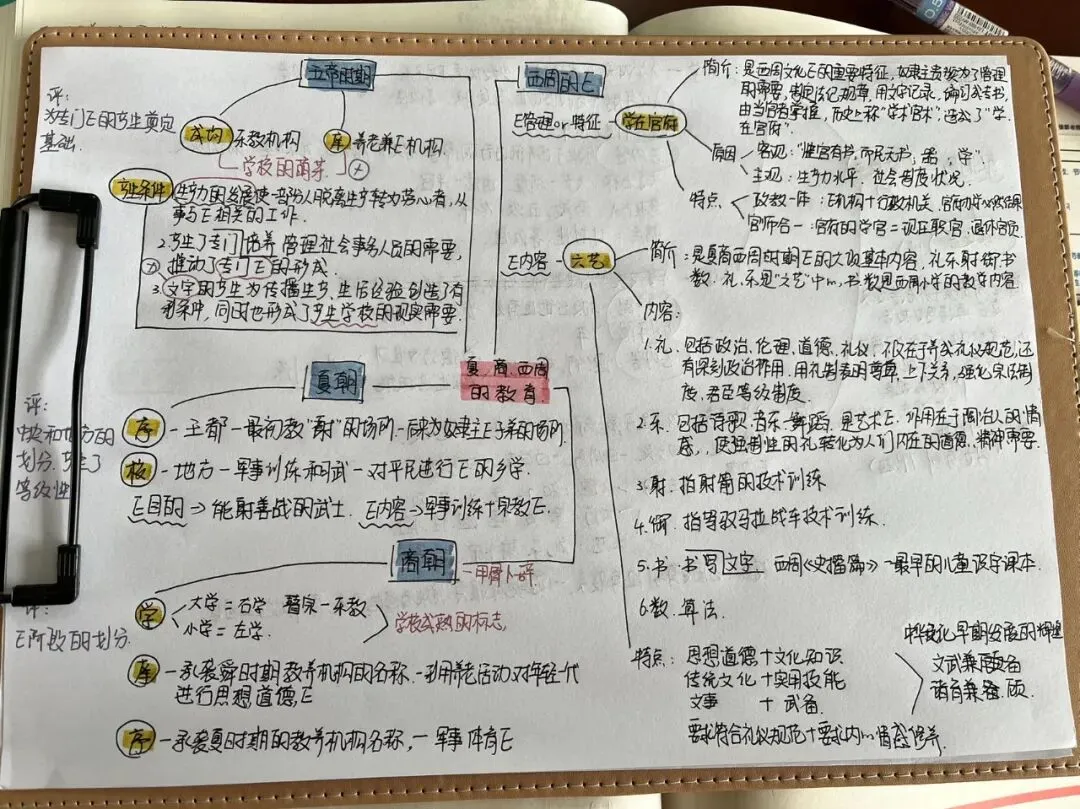 五帝时期
评:
为专门E的产生奠定
基础.
成均 乐教机构
庠 养老兼E机构.
学校的萌芽.
产生条件
生产力的发展使一部分人脱离生产转为劳心者,从
事与E相关的工作.
2.产生了专门培养管理社会事务人员的需要,
推动了专门E的形式.
3.文字的产生为传播生产、生活经验创造了有
利条件,同时也形式了产生学校的现实需要.
夏、商、西周
的教育
夏朝
评:
中央和地方的
划分.产生了
等级性
序 - 王都 - 最初教"射"的场所 - 后来为奴隶主E子弟的场所.
校 - 地方 - 军事训练和习武 - 对平民进行E的乡学.
E目的 → 能射善战的武士. E内容 → 军事训练+宗教E.
商朝
-甲骨卜辞.
评:
E阶段的划分.
学
大学=右学 瞽宗-乐教
小学=左学.
学校成熟的标志.
庠 - 承袭舜时期教养机构的名称.-利用养老活动对年轻一代
进行思想道德E
序 - 承袭夏时期的教养机构名称,- 军事体育E
西周的E
E管理or特征
学在官府
简介:是西周文化E的重要特征,奴隶主贵族为了管理
的需要,制定法纪规章,用文字记录,编习成专书,
由当官者掌握,历史上称"学术官守",造成了"学
在官府".
原因
客观:"惟官有书,而民无书;器;学"
主观:生产力水平.社会制度状况.
特点
政教一体:E机构+行政机关.
官师合一:官府的学官=现任职官、退休官员.
E内容 - 六艺
简介:是夏商西周时期E的大致基本内容,礼乐射御书
数.礼、乐是"六艺"中心,书数是西周小学的教学内容.
内容:
1.礼.包括政治、伦理、道德、礼仪.不仅在于养成礼仪规范,还
有深刻政治作用.用礼制表的尊卑,上下关系,强化宗法制
度、君臣等级制度.
2.乐.包括诗歌、音乐、舞蹈.是艺术E.作用在于陶冶人的情
感,,使强制性的礼转化为人们内在的道德、精神需要.
3.射.指射箭的技术训练
4.御.指驾驭马拉战车技术训练.
5.书.书写文字. 西周《史籀篇》-最早的儿童识字课本.
6.数.算法.
特点: 思想道德+文化知识
传统文化+实用技能
文事 + 武备.
要求符合礼仪规范+要求内心情感修养.
中华文化早期发展的辉煌
文武兼备
诸育兼顾.